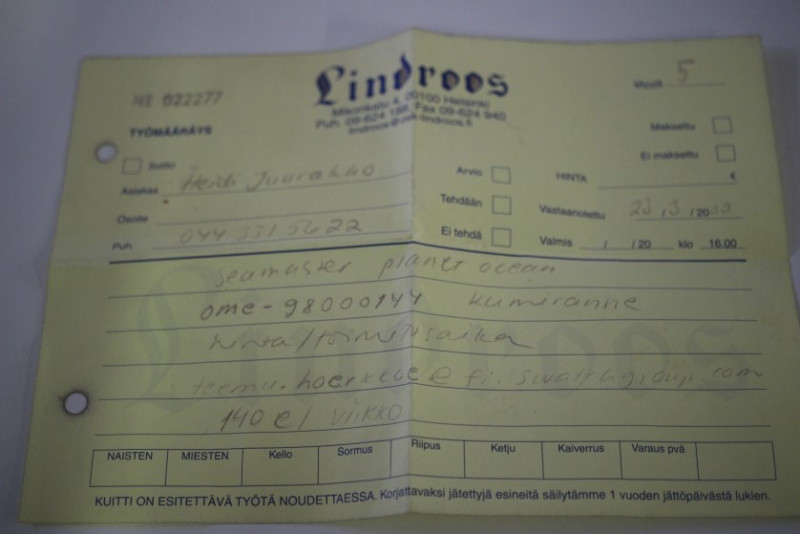 Lindroos
Mikonkatu 4, 00100 Helsinki
Puh. 09-624 188, Fax 09-624 940
Myyjä 5
Nº 022277
TYÖMÄÄRÄYS
Maksettu
Soitto
Ei maksettu
Asiakas Heidi
Arvio
HINTA €
Osoite
Tehdään
Vastaanotettu 23/3/20
Puh. 044 331 5622
Ei tehdä
Valmis / /20 klo 16.00
seamaster planet ocean
ome-98000144 kumiranne
hinta/toimitusaika
140 e/ viikko
NAISTEN MIESTEN Kello Sormus Riipus Ketju Kaiverrus Varaus pvä
KUITTI ON ESITETTÄVÄ TYÖTÄ NOUDETTAESSA. Korjattavaksi jätettyjä esineitä säilytämme 1 vuoden jättöpäivästä lukien.